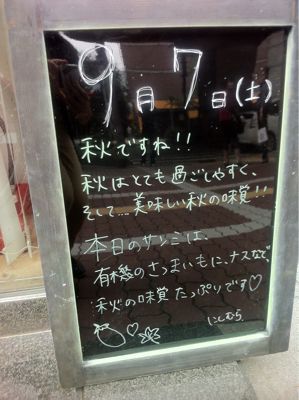 9月7日(土)
秋ですね!!
秋はとても過ごしやすく、
そして…美味しい秋の味覚!!
本日のサンミは、
有機のさつまいもに、ナスなど、
秋の味覚たっぷりです♡
にしむら